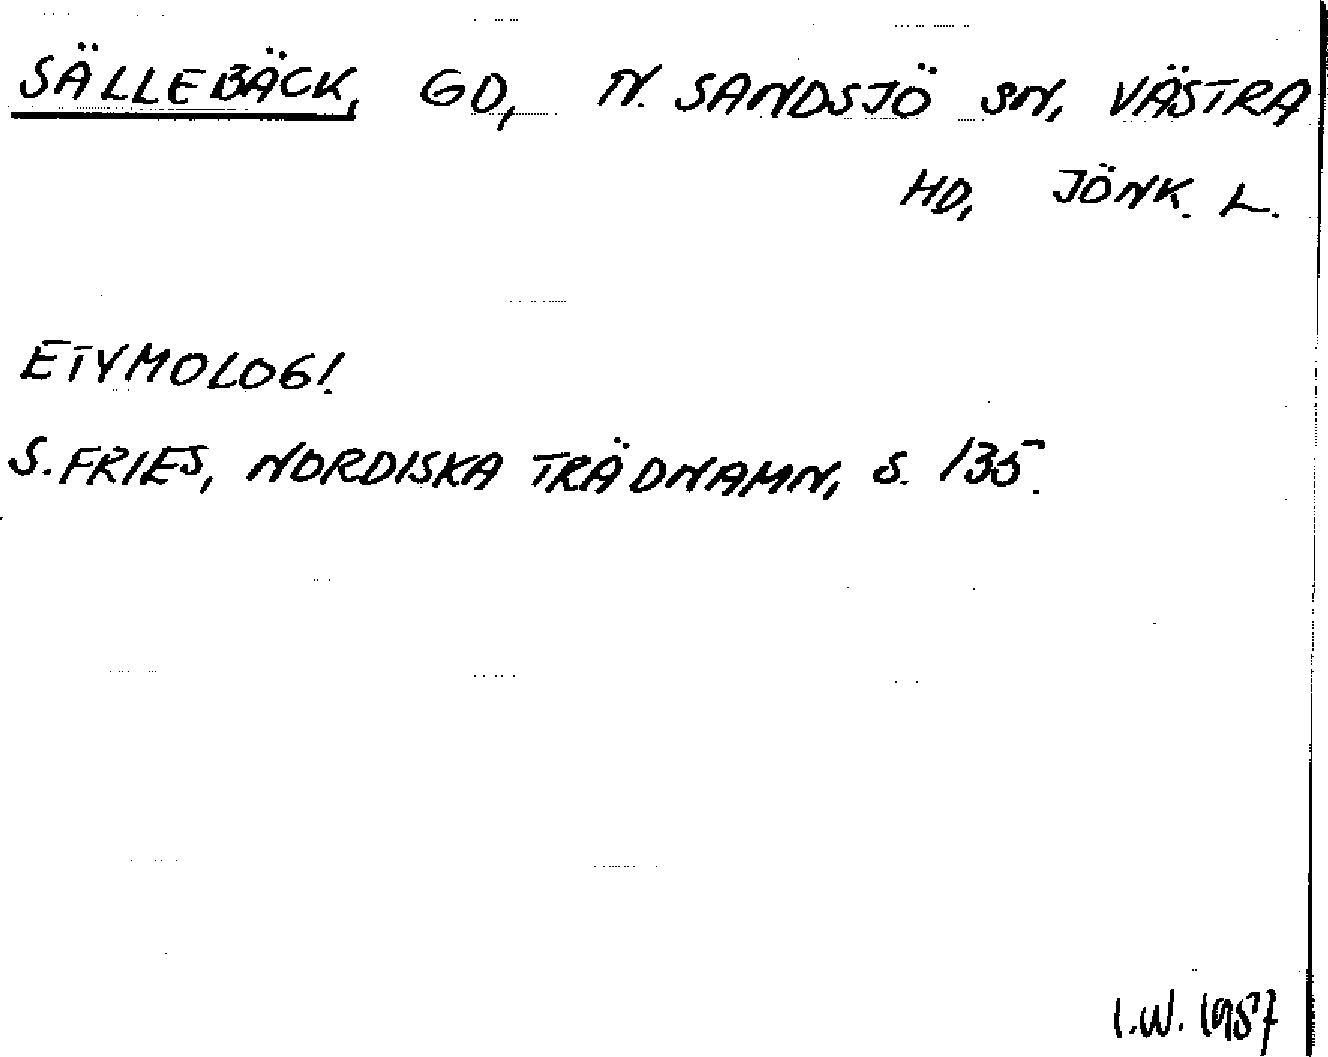 SÄLLEBÄCK, GD, N. SANDSJÖ SN, VÄSTRA
HD, JÖNK. L.
ETYMOLOGI.
S. FRIES, NORDISKA TRÄDNAMN, S. 135.
I.W. 1987